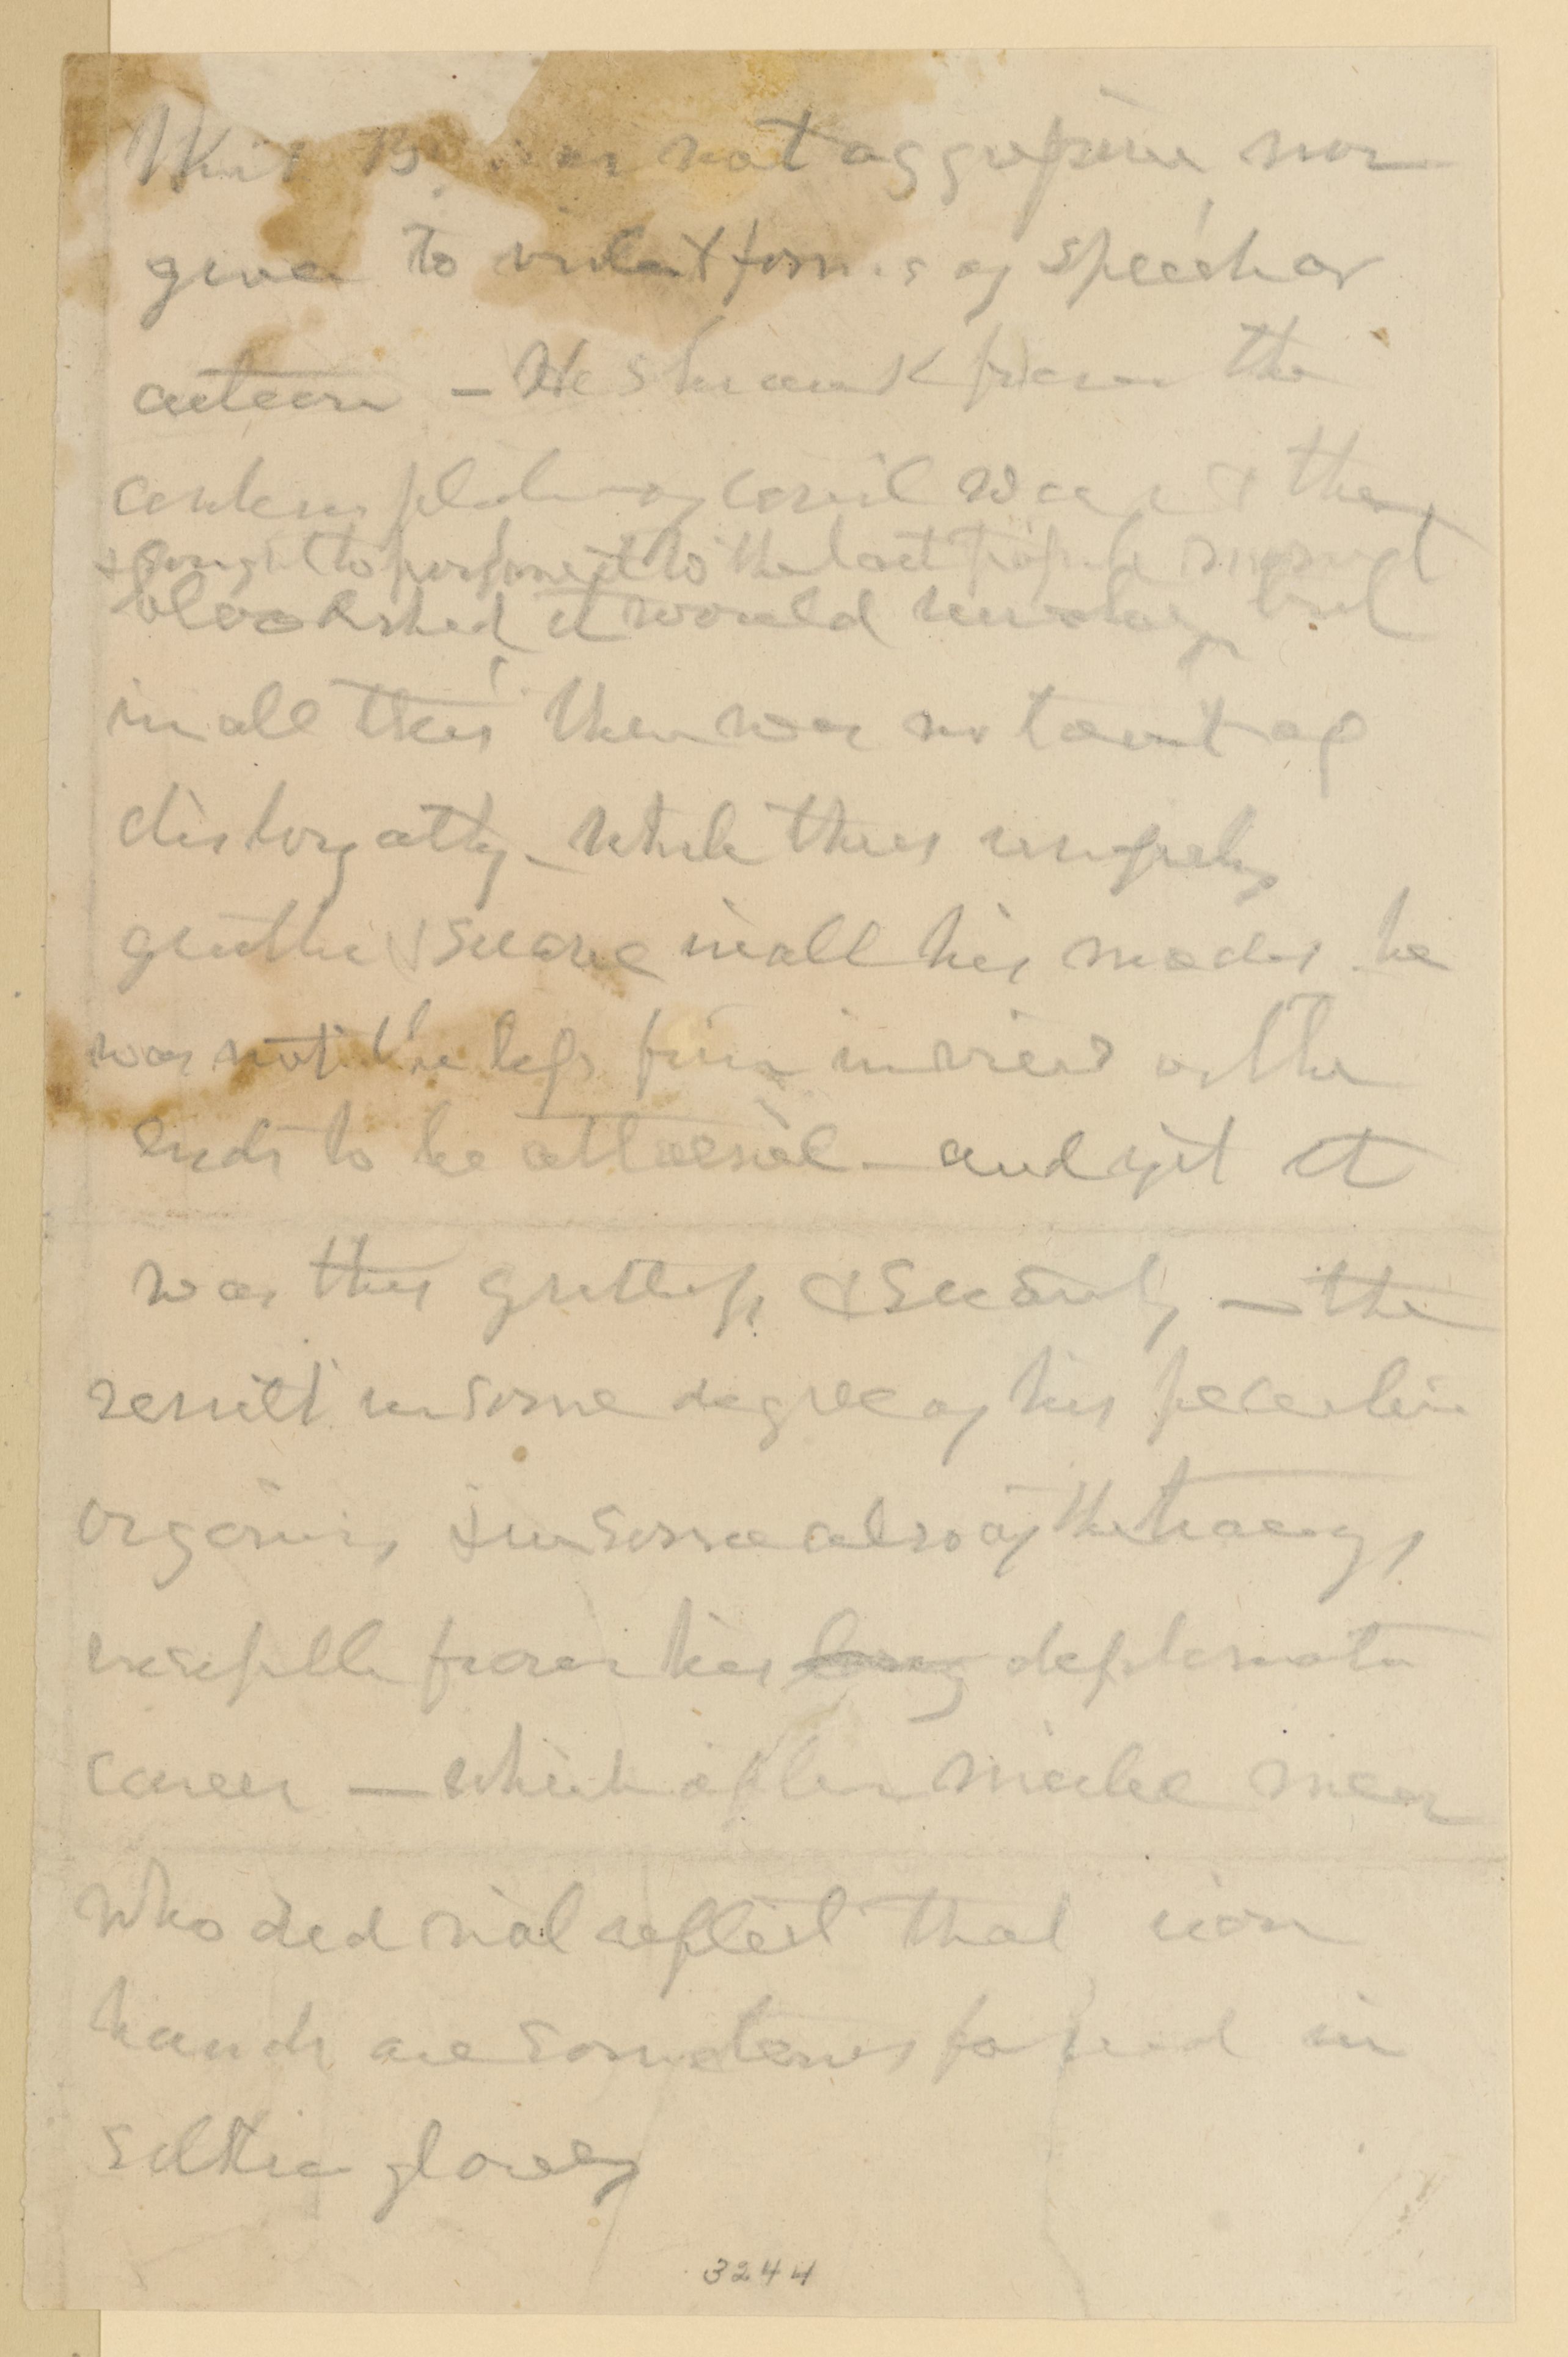 Mr B. was not aggressive nor
given to violent forms of speech or
action — He shrank from the
contemplation of civil war & the
& sought to postpone it to the last possible moment
bloodshed it would involve, but
in all this there was no taint of
disloyalty — while thus
gentle & suave in all his modes he
was not the less firm in view of the
ends to be attained — and yet it
was this gentleness & suavity — the
result in some degree of his peculiar
organism, & in some also of the training
inseparable from his long diplomatic
career — which often misled men
who did not reflect that iron
hands are sometimes found in
silken gloves
3244